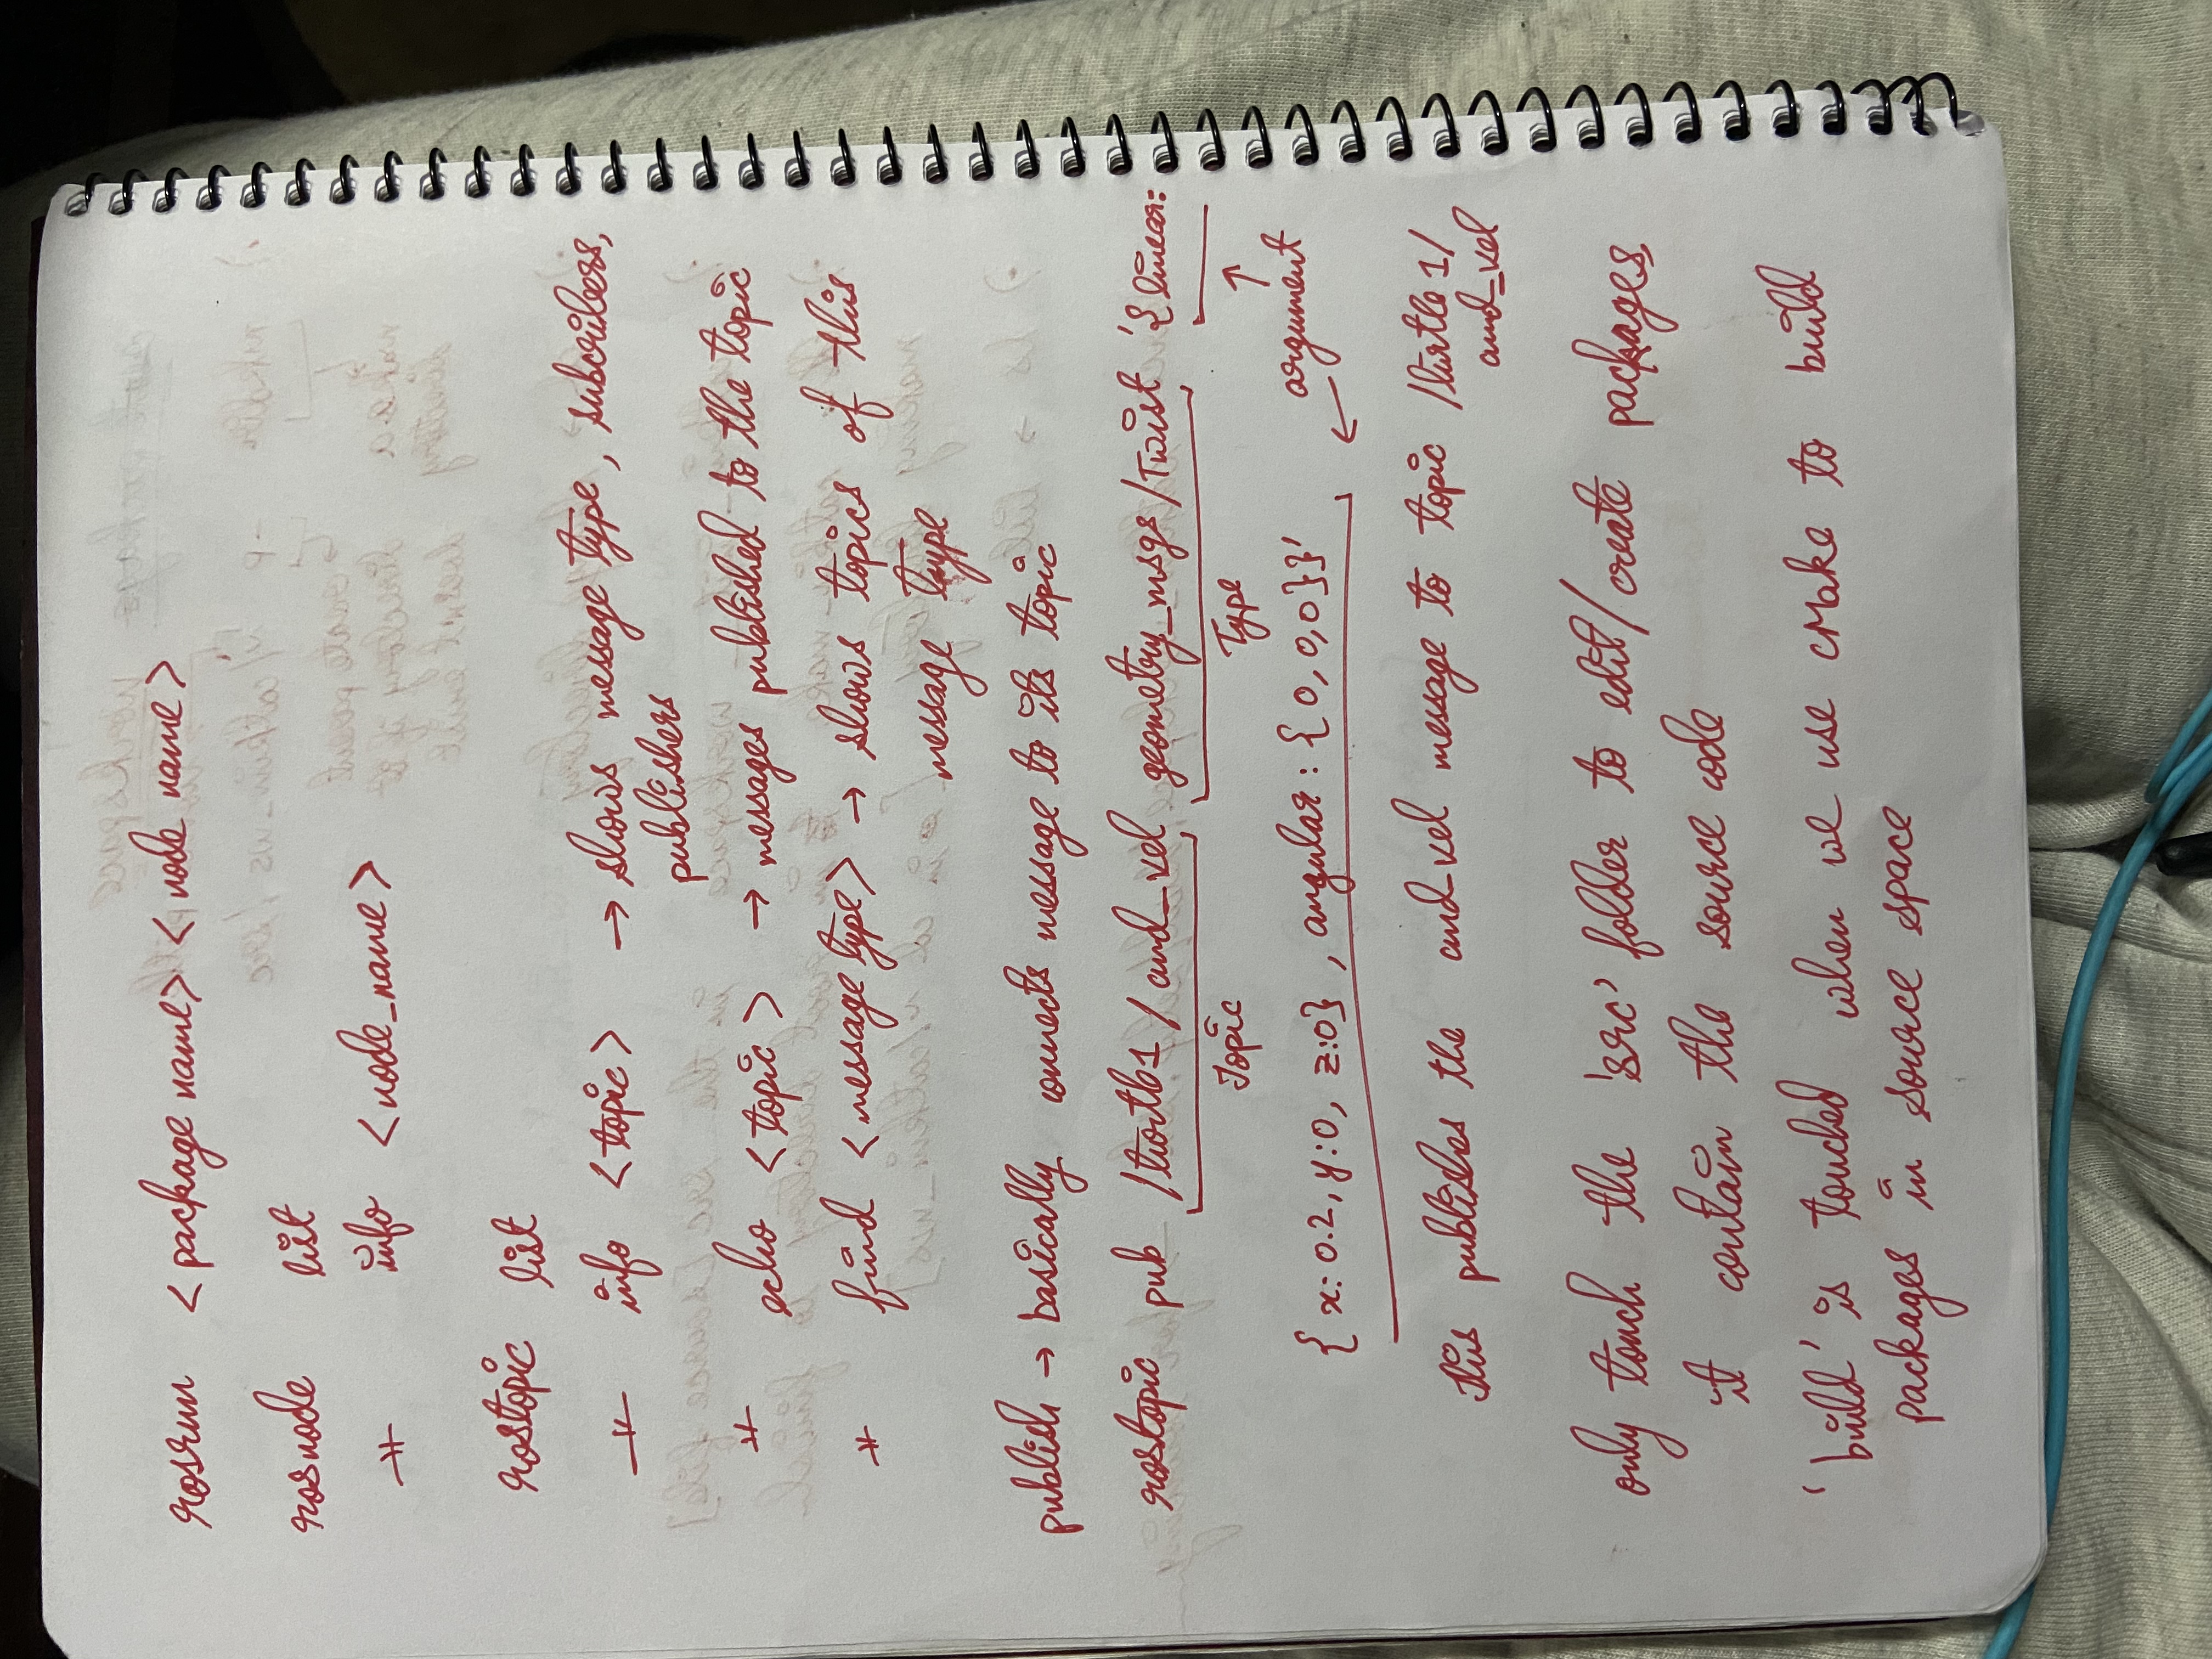 rosrun <package name> <node name>
rosnode list
–〃– info <node_name>
rostopic list
–〃– info <topic> → shows message type, subcribers,
publishers
–〃– echo <topic> → messages published to the topic
–〃– find <message type> → shows topics of this
message type
publish → basically connects message to its topic
rostopic pub /turtle1/cmd_vel geometry_msgs/Twist '{linear:
Topic Type
{x: 0.2, y:0, z:0}, angular: {0,0,0}}' argument
This publishes the cmd_vel message to topic /turtle1/
cmd_vel
only touch the 'src' folder to edit/create packages,
it contain the source code
'build' is touched when we use cMake to build
packages in source space